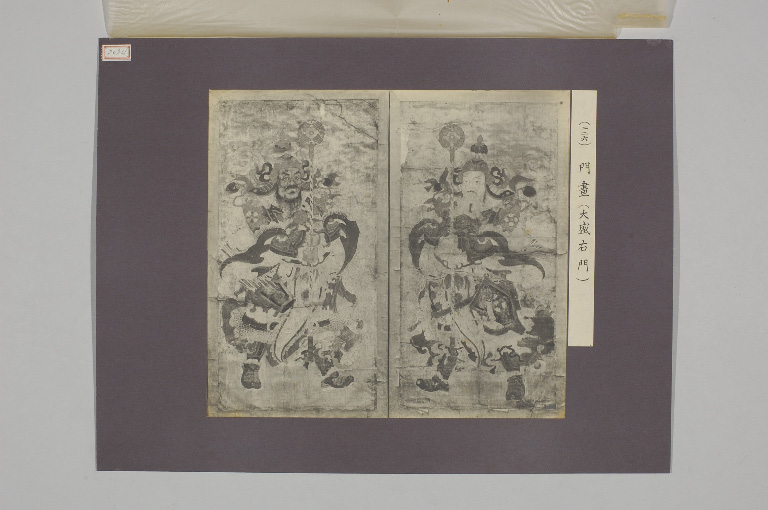 (二六) 門畫(大盛右門)